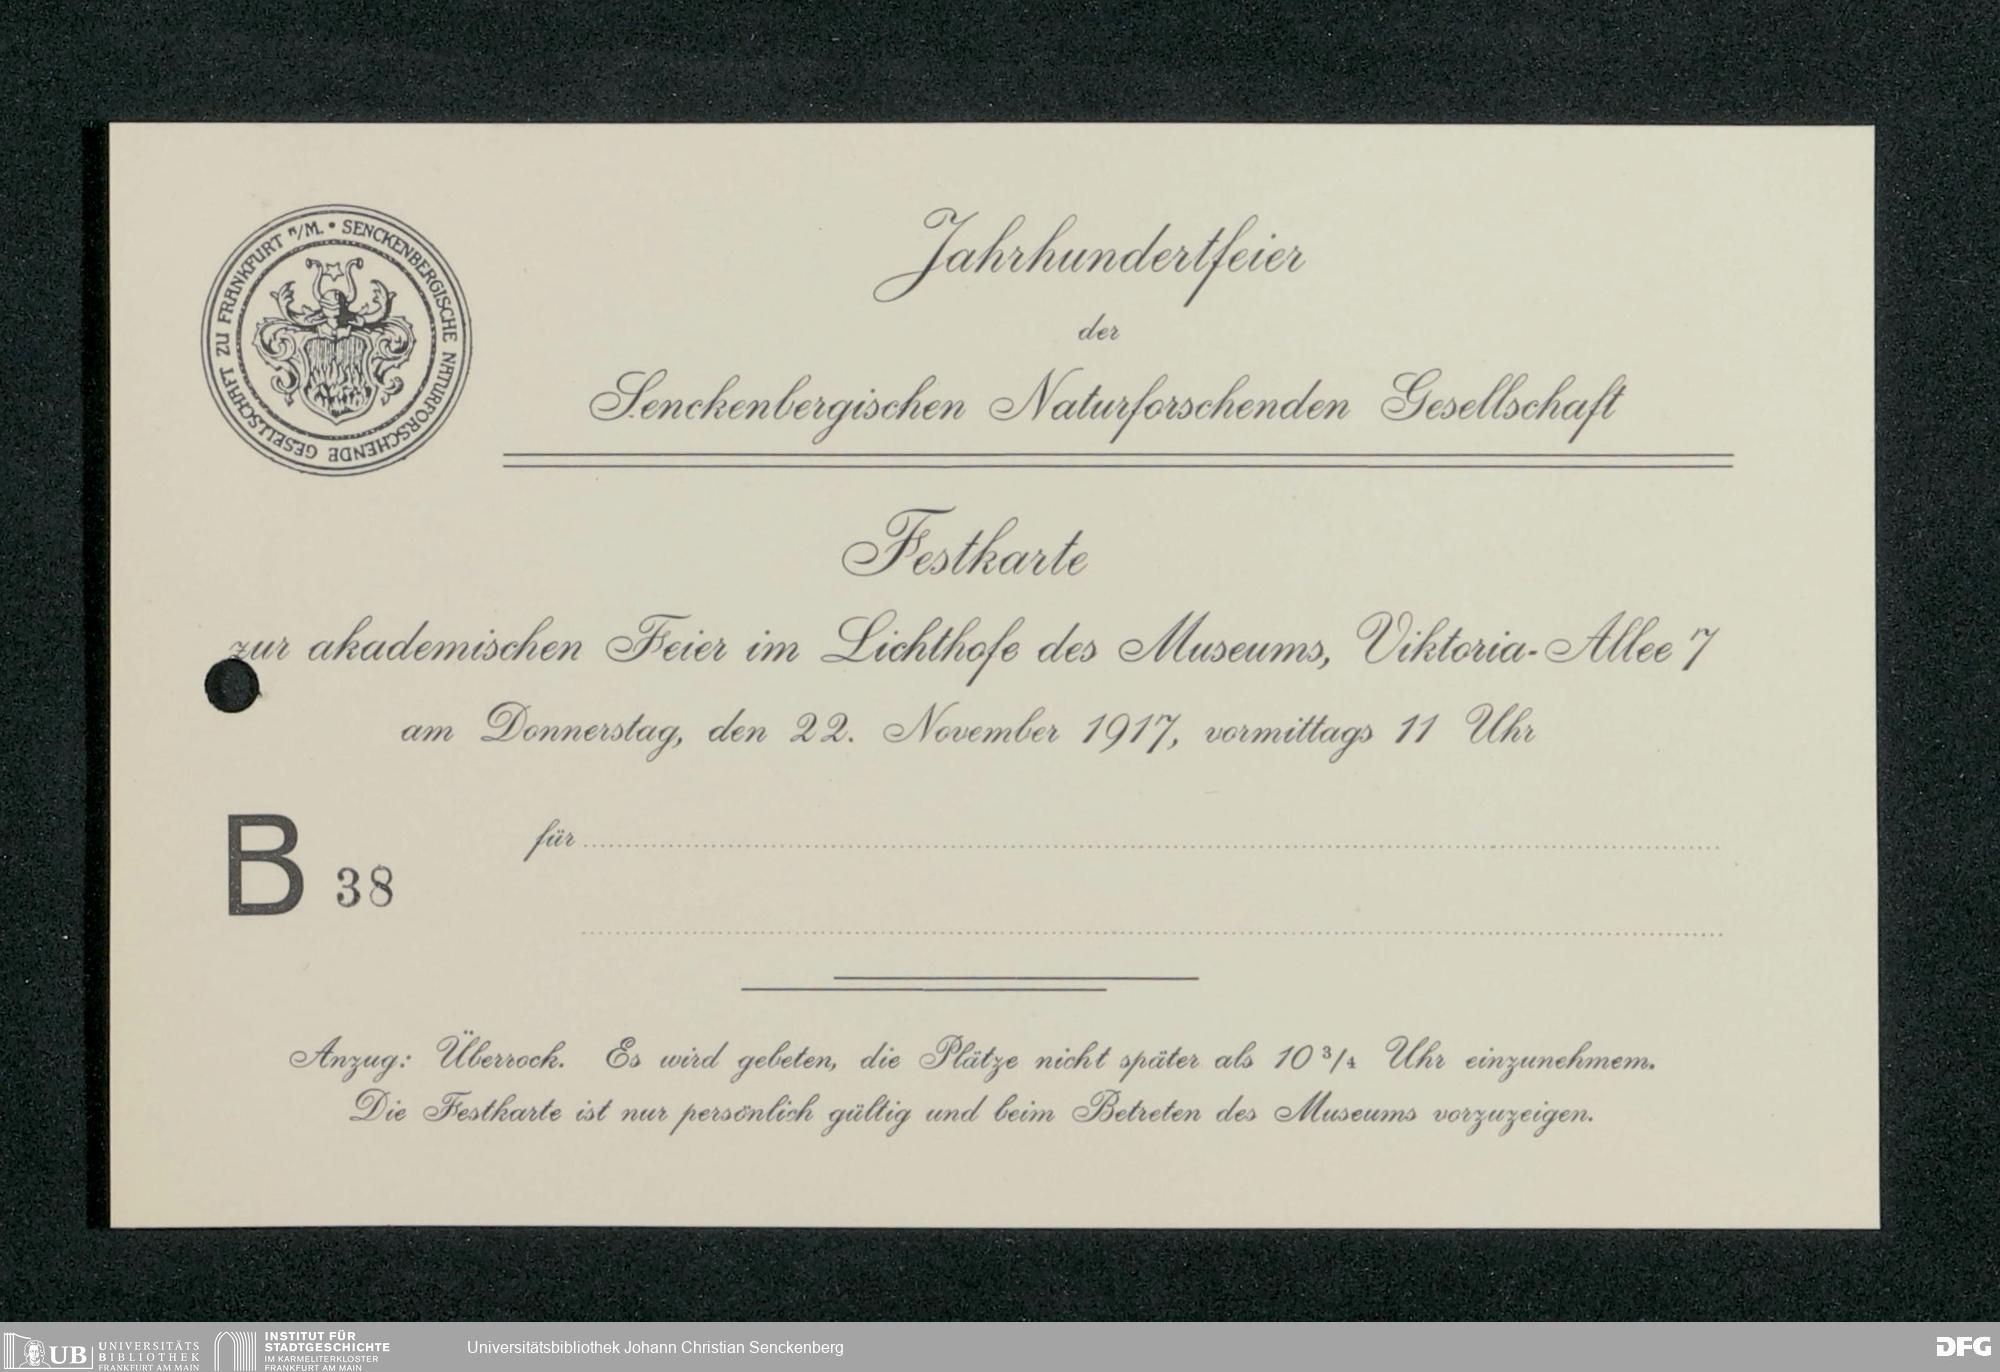 SENCKENBERGISCHE NATURFORSCHENDE GESELLSCHAFT ZU FRANKFURT a/M. •
Jahrhundertfeier
der
Senckenbergischen Naturforschenden Gesellschaft
Festkarte
zur akademischen Feier im Lichthofe des Museums, Viktoria-Allee 7
am Donnerstag, den 22. November 1917, vormittags 11 Uhr
B 38
für
Anzug: Überrock. Es wird gebeten, die Plätze nicht später als 10 3/4 Uhr einzunehmem.
Die Festkarte ist nur persönlich gültig und beim Betreten des Museums vorzuzeigen.
UB UNIVERSITÄTS
BIBLIOTHEK
FRANKFURT AM MAIN
INSTITUT FÜR
STADTGESCHICHTE
IM KARMELITERKLOSTER
FRANKFURT AM MAIN
Universitätsbibliothek Johann Christian Senckenberg
DFG